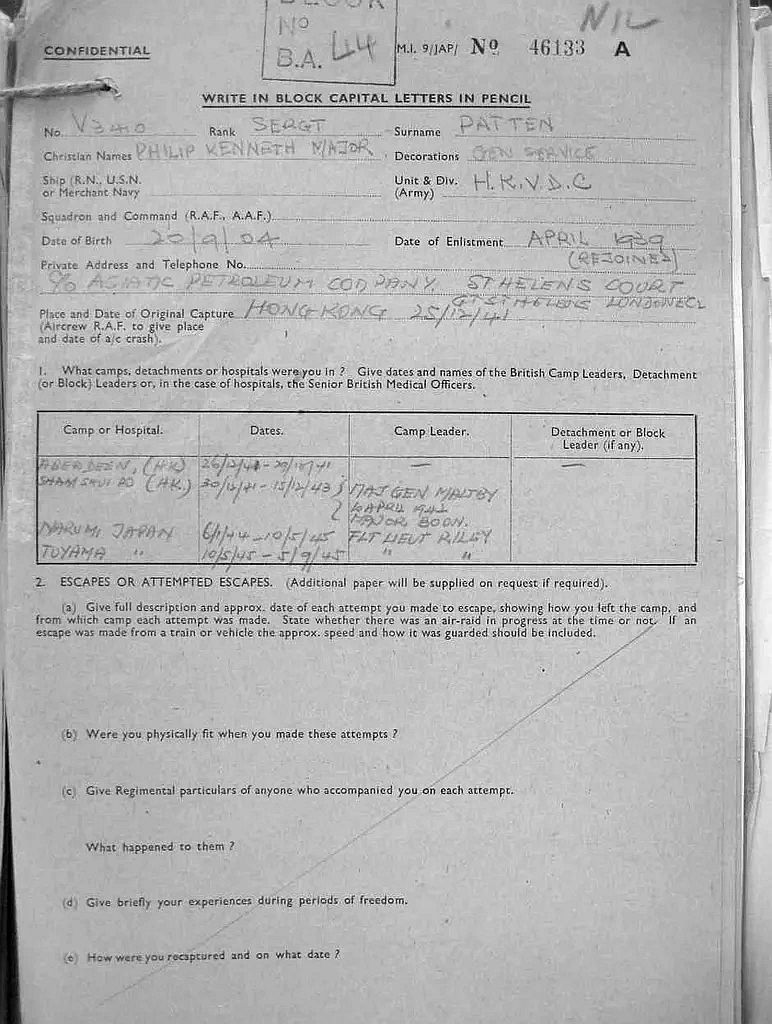 BLOCK
No
B.A. 44
NIL
CONFIDENTIAL
M.I. 9/JAP/ No 46133 A
WRITE IN BLOCK CAPITAL LETTERS IN PENCIL
No. V3410 Rank SERGT Surname PATTEN
Christian Names PHILIP KENNETH MAJOR Decorations GEN SERVICE
Ship (R.N., U.S.N. or Merchant Navy
Unit & Div. (Army) H.K.V.D.C
Squadron and Command (R.A.F., A.A.F.)
Date of Birth 20/9/04 Date of Enlistment APRIL 1939
Private Address and Telephone No. (REJOINED)
c/o ASIATIC PETROLEUM COMPANY, ST HELENS COURT
GT ST HELENS LONDON EC2
Place and Date of Original Capture HONG KONG 25/12/41
(Aircrew R.A.F. to give place
and date of a/c crash).
1. What camps, detachments or hospitals were you in ? Give dates and names of the British Camp Leaders, Detachment
(or Block) Leaders or, in the case of hospitals, the Senior British Medical Officers.
Camp or Hospital. Dates. Camp Leader. Detachment or Block
Leader (if any).
ABERDEEN, (HK) 26/12/41 - 29/12/41 — —
SHAMSHUI PO (HK.) 30/12/41 - 15/12/43 } MAJ GEN MALTBY
APRIL 1942
MAJOR BOON.
NARUMI JAPAN 6/1/44 - 10/5/45 FLT LIEUT RILEY
TOYAMA " 10/5/45 - 5/9/45 " "
2. ESCAPES OR ATTEMPTED ESCAPES. (Additional paper will be supplied on request if required).
(a) Give full description and approx. date of each attempt you made to escape, showing how you left the camp, and
from which camp each attempt was made. State whether there was an air-raid in progress at the time or not. If an
escape was made from a train or vehicle the approx. speed and how it was guarded should be included.
(b) Were you physically fit when you made these attempts ?
(c) Give Regimental particulars of anyone who accompanied you on each attempt.
What happened to them ?
(d) Give briefly your experiences during periods of freedom.
(e) How were you recaptured and on what date ?